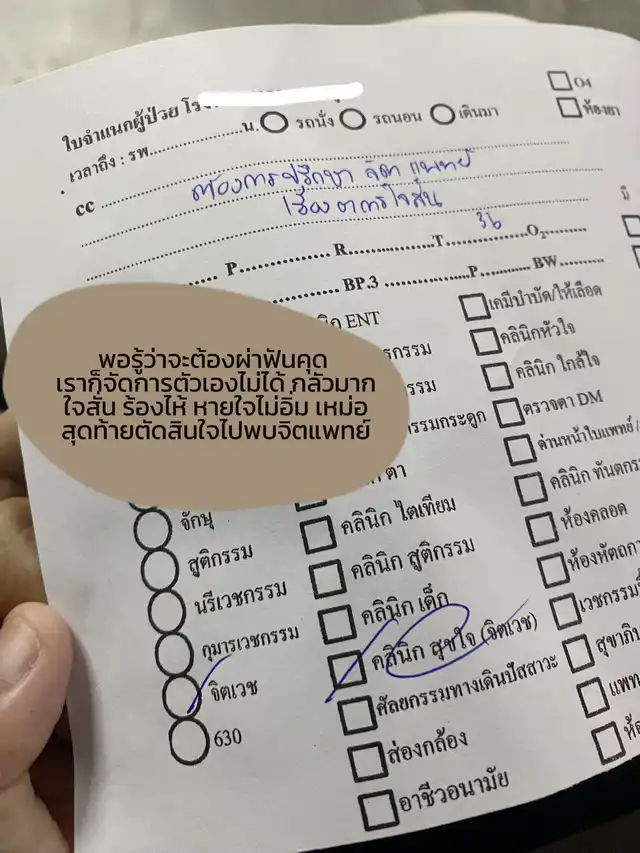 ใบจำแนกผู้ป่วย
O4
เวลาถึง : รพ.................น. รถนั่ง รถนอน เดินมา
ห้องยา
cc ต้องการปรึกษา จิตแพทย์
เรื่องอาการใจสั่น
P.............. R.................T........36.........O2..........
BP.3 ................P............ BW..........
มี
ENT
เคมีบำบัด/ให้เลือด
คลินิกหัวใจ
คลินิก ใกล้ใจ
ตรวจตา DM
ด่านหน้าใบแพทย์ /
พอรู้ว่าจะต้องผ่าฟันคุด
เราก็จัดการตัวเองไม่ได้ กลัวมาก
ใจสั่น ร้องไห้ หายใจไม่อิ่ม เหม่อ
สุดท้ายตัดสินใจไปพบจิตแพทย์
ตา
จักษุ
คลินิก ไตเทียม
ห้องคลอด
สูติกรรม
คลินิก สูติกรรม
นรีเวชกรรม
คลินิก เด็ก
กุมารเวชกรรม
คลินิก สุขใจ (จิตเวช)
จิตเวช
ศัลยกรรมทางเดินปัสสาวะ
630
ส่องกล้อง
อาชีวอนามัย